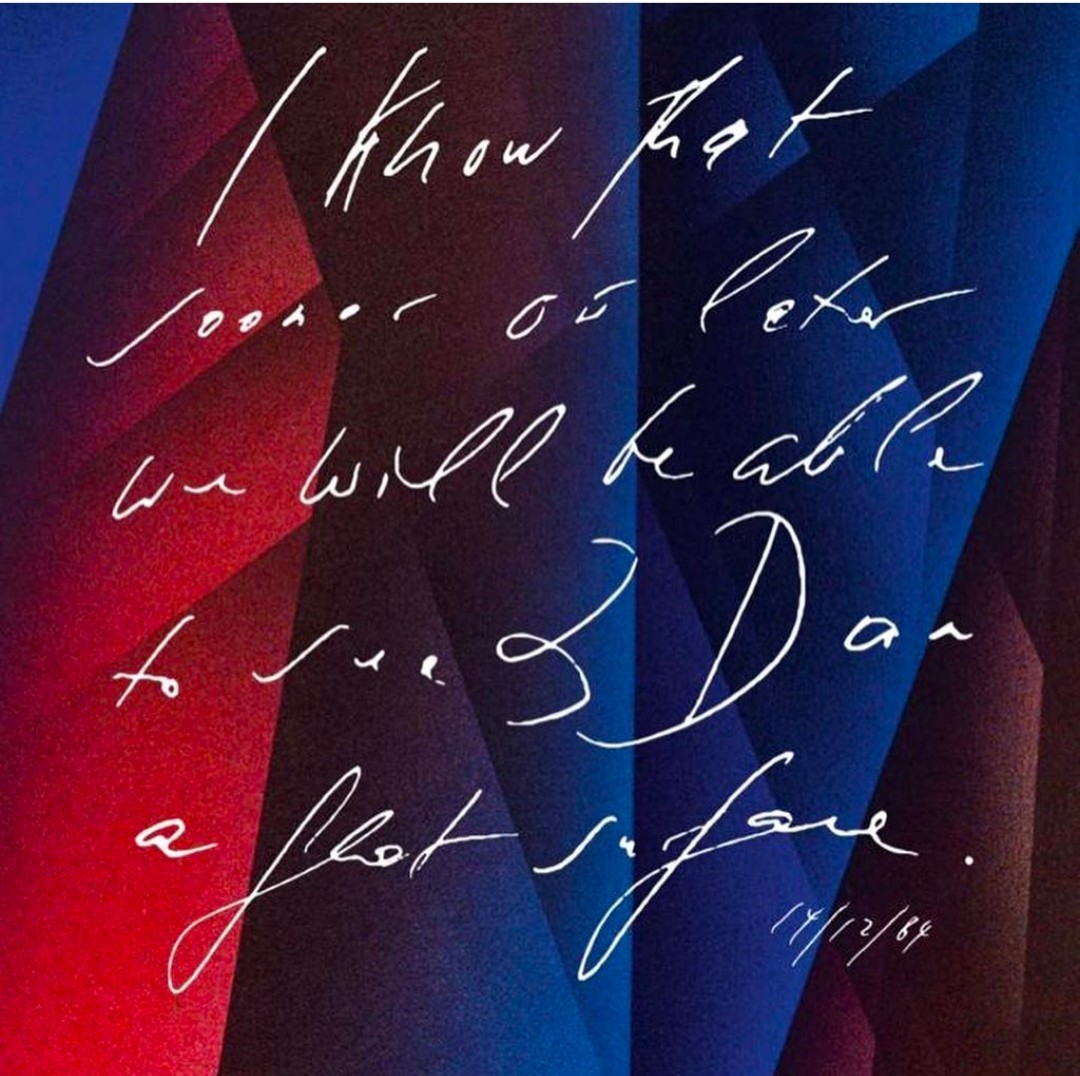 I know that
sooner or later
we will be able
to see 3D on
a flat surface.
14/12/84